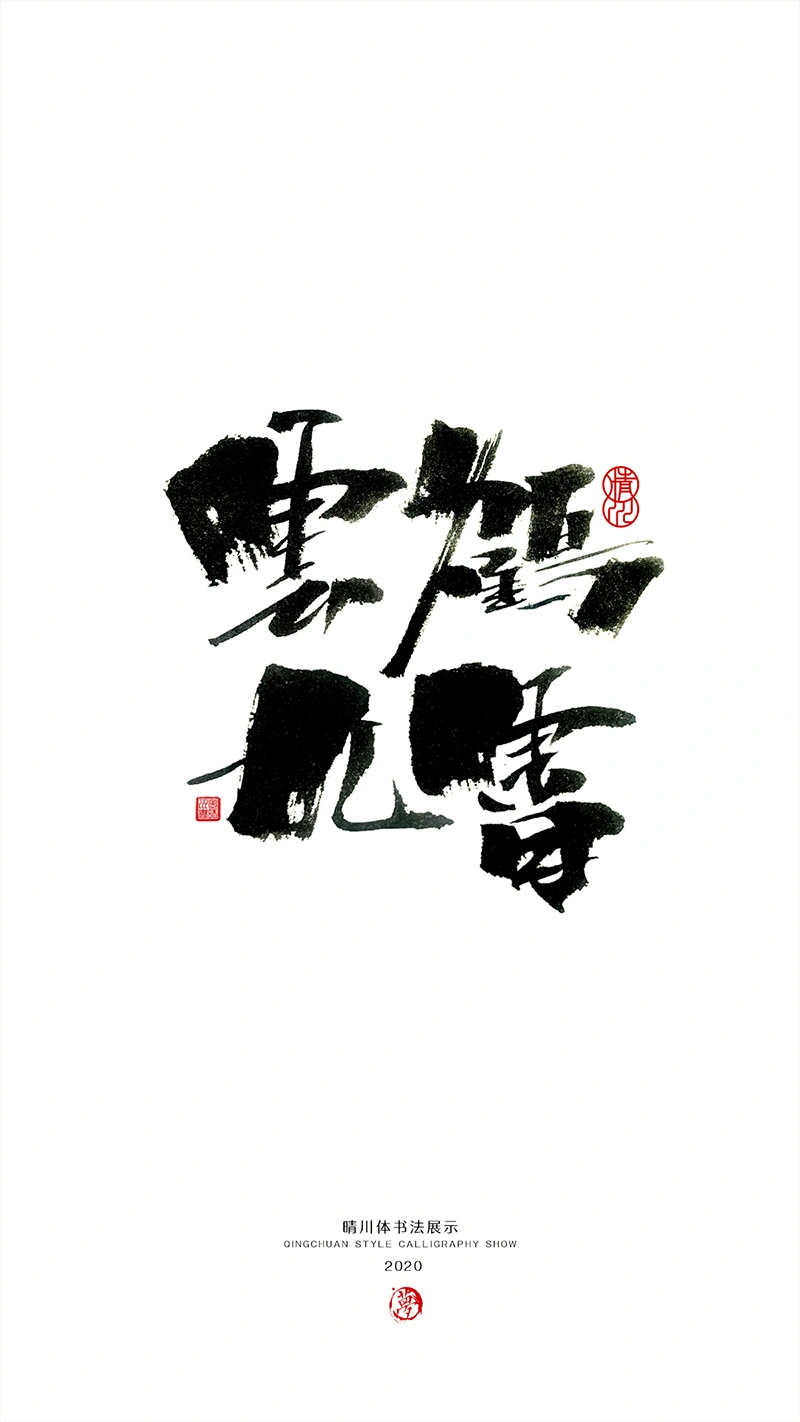 雲鶴
九霄
晴川
晴川体书法展示
QINGCHUAN STYLE CALLIGRAPHY SHOW
2020
夢